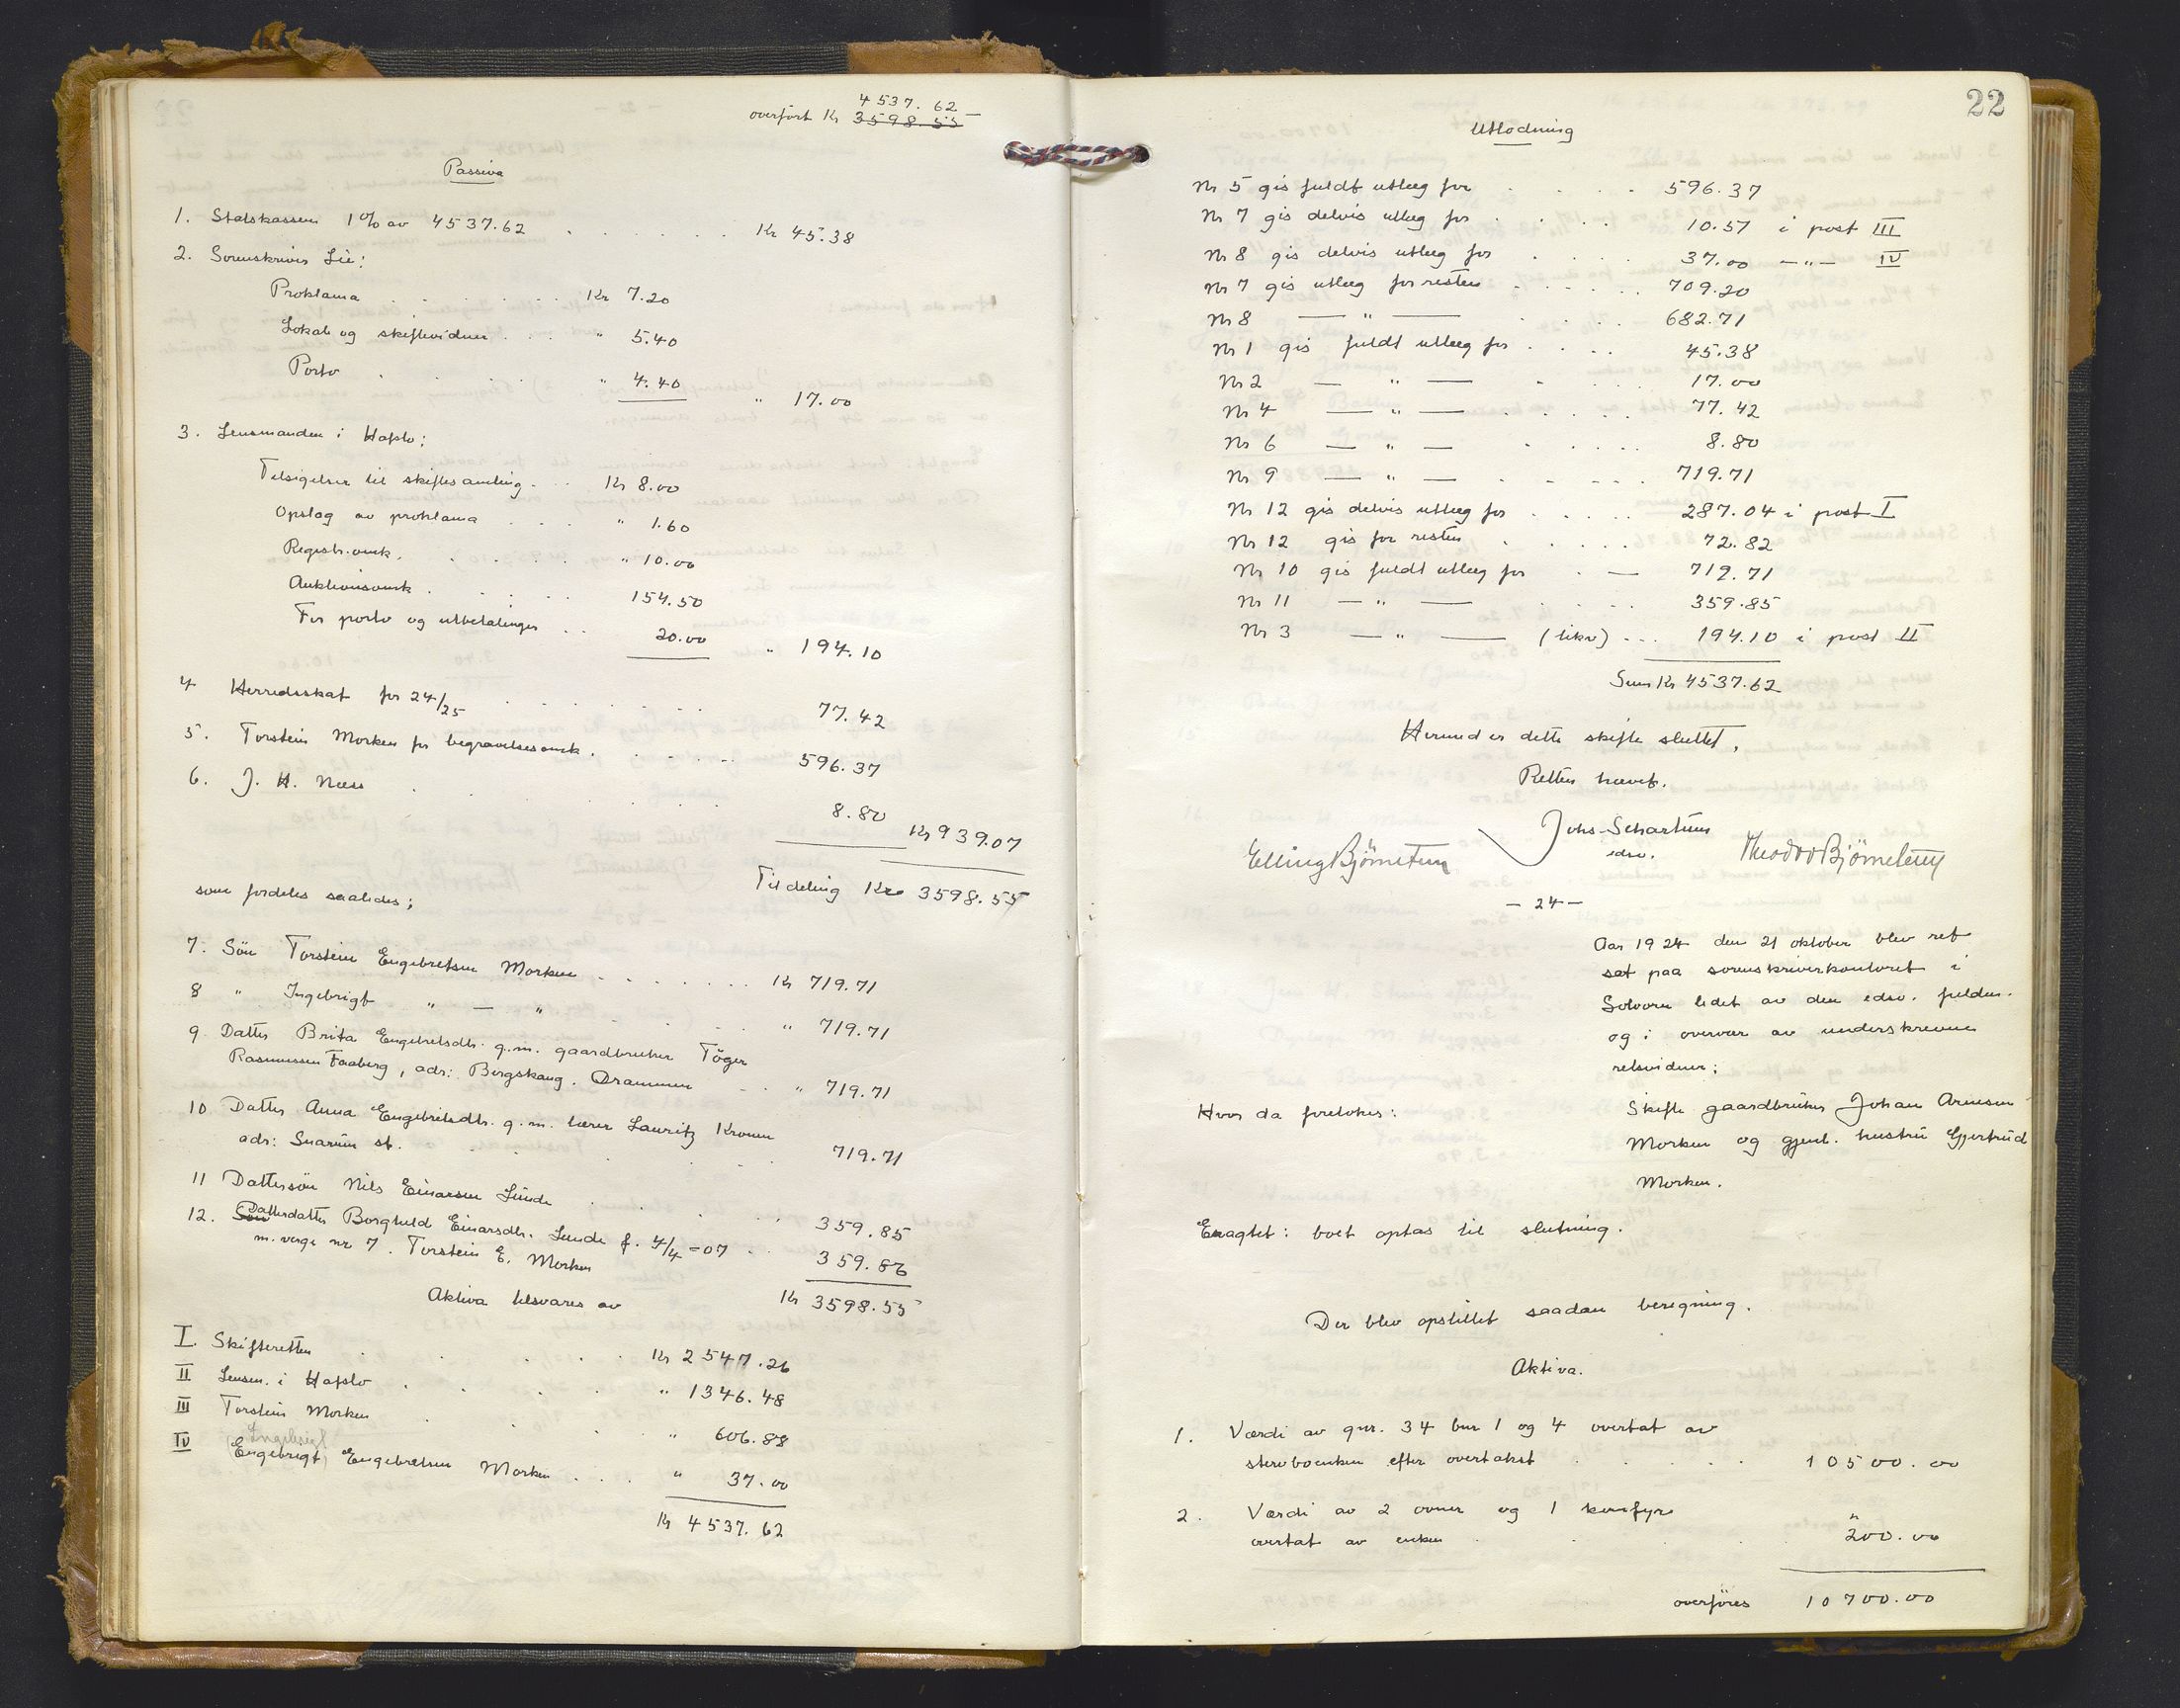 4537.62
overført Kr 3598.55
Passiva
1. Statskassen 1% av 4537.62 . . . . . . Kr 45.38
2. Sorenskriver Lie:
Proklama . . . . . . Kr 7.20
Lokale og skiftevidner . . . " 5.40
Porto . . . . " 4.40 " 17.00
3. Lensmanden i Hafslo:
Tilsigelser til skiftesamling . . Kr 8.00
Opslag av proklama . . . " 1.60
Registr.omk. . . . . . " 10.00
Auktionsomk . . . . . 154.50
For porto og utbetalinger . . 20.00 " 194.10
4 Herredsskat for 24/25 . . . . . . . 77.42
5. Torstein Morken for begravelsesomk. . . . . . 596.37
6. J. H. Næss . . . . . . . 8.80 Kr 939.07
Til deling Kr 3598.55
som fordeles saaledes;
7. Sön Torstein Engebretsen Morken . . . . . . . Kr 719.71
8 " Ingebrigt " — " . . . . " 719.71
9. Datter Brita Engebretsdtr. g.m. gaardbruker Töger
Rasmussen Faaberg, adr: Bergskaug. Drammen . . " 719.71
10 Datter Anna Engebretsdtr. g.m. lærer Lauritz Kronen
adr: Snarum st. . . . . . 719.71
11 Dattersön Nils Einarsen Lunde . . . . . 359.85
12. Sön Datterdatter Borghild Einarsdtr. Lunde f. 4/4 -07 . . 359.86
m. verge nr 7. Torstein E. Morken
Kr 3598.55
Aktiva tilsvares av
I. Skifteretten . . . . . Kr 2547.26
II Lensm. i Hafslo . . . . " 1346.48
III Torstein Morken . . . . " 606.88
Ingebrigt
IV Engebrigt Engebretsen Morken . . . " 37.00
Kr 4537.62
22
Utlodning
Nr 5 gis fuldt utlæg for . . . . 596.37
Nr 7 gis delvis utlæg for . . . . 10.57 i post III
Nr 8 gis delvis utlæg for . . . . 37.00 —"— IV
Nr 7 gis utlæg for resten . . . . . 709.20
Nr 8 — " — . . . . 682.71
Nr 1 gis fuldt utlæg for . . . . 45.38
Nr 2 — " — . . . 17.00
Nr 4 — " — . . . . 77.42
Nr 6 — " — . . . . 8.80
Nr 9 — " — . . . . . 719.71
Nr 12 gis delvis utlæg for . . . . . 287.04 i post I
Nr 12 gis for resten . . . . . 72.82
Nr 10 gis fuldt utlæg for . — 719.71
Nr 11 — " — . . . . 359.85
Nr 3 — " — (likv) . . . 194.10 i post II
Sum Kr 4537.62
Hermed er dette skifte sluttet,
Retten hævet.
Johs. Schartum
edsv.
Elling Björnetun Theodor Björnetun
— 24 —
Aar 1924 den 21 oktober blev ret
sat paa sorenskriverkontoret i
Solvorn ledet av den edsv. fuldm.
og i overvær av underskrevne
retsvidner;
Hvor da foretokes: Skifte gaardbruker Johan Arnesen
Morken og gjenl. hustru Gjertrud
Morken.
Eragtet: boet optas til slutning.
Der blev opstillet saadan beregning.
Aktiva.
1. Værdi av gnr. 34 bnr 1 og 4 overtat av
stervboenken efter overtakst . . . . . 10500.00
2. Værdi av 2 ovner og 1 komfyr
overtat av enken . . . " 200.00
overføres 10700.00